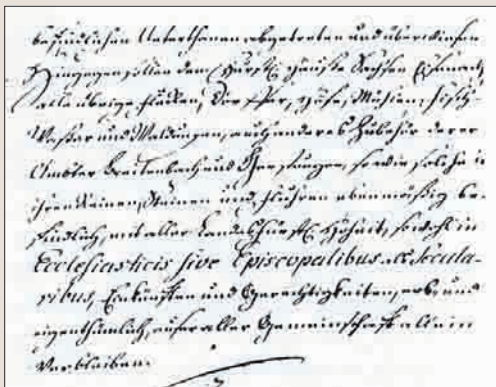 befindlichen Unterthanen abgetreten und überwiesen
Hingegen sollen dem Fürstl. Hause Sachsen Eisenach
alle übrige Flecken, Dörffer, Höfe, Mühlen, Fisch-
Waßer und Waldungen, auch anderes Zubehör derer
Ämbter Breitenbach und Gerstungen, so wie solche in
ihren Reinen, Steinen und Fluhren ebenmäßig be-
findlich, mit aller Landesfürstl. Hoheit, sowohl in
Ecclesiasticis sive Episcopalibus als Secula-
ribus, Einkünften und Gerechtigkeiten, erb- und
eigenthümlich, außer aller Gemeinschaft allein
verbleiben.